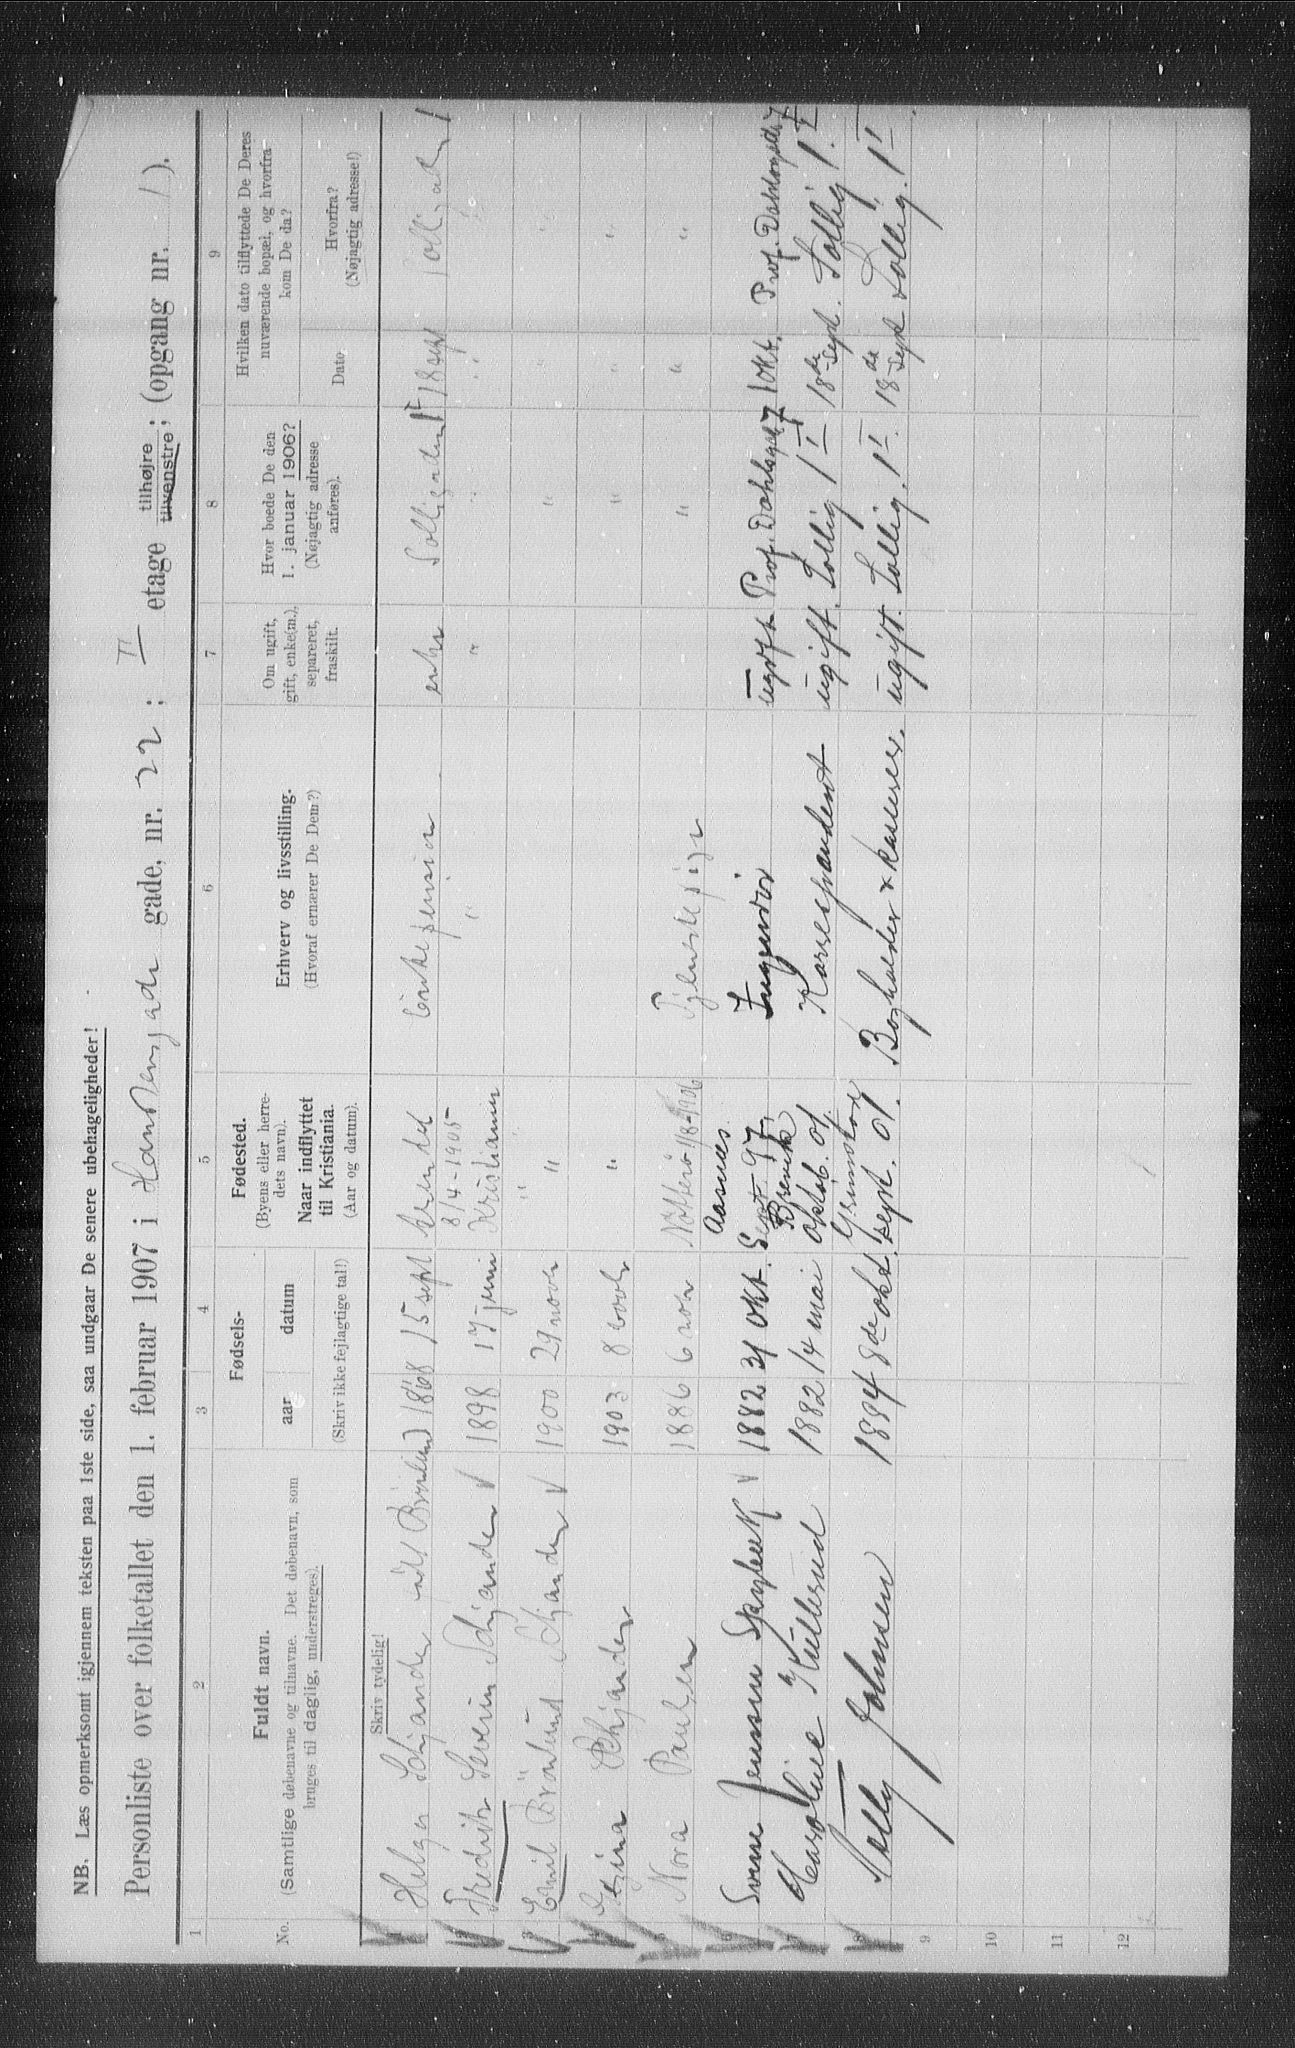 NB. Læs opmerksomt igjennem teksten paa 1ste side, saa undgaar De senere ubehageligheder!
Personliste over folketallet den 1. februar 1907 i Hansteensgade gade, nr. 22; II etage tilhøjre tilvenstre; (opgang nr. 1).
1 2 3 4 5 6 7 8 9
No.
Fuldt navn.
(Samtlige døbenavne og tilnavne. Det døbenavn, som
bruges til daglig, understreges).
Fødsels-
aar datum
(Skriv ikke fejlagtige tal!)
Fødested.
(Byens eller herre-
dets navn).
Naar indflyttet
til Kristiania.
(Aar og datum).
Erhverv og livsstilling.
(Hvoraf ernærer De Dem?)
Om ugift,
gift, enke(m.),
separeret,
fraskilt.
Hvor boede De den
1. januar 1906?
(Nøjagtig adresse
anføres).
Hvilken dato tilflyttede De Deres
nuværende bopæl, og hvorfra
kom De da?
Dato
Hvorfra?
(Nøjagtig adresse!)
Skriv tydelig!
Helga Schjander født 1868 15 sept Arendal 8/4-1905 Enkepension enke Solligaden 1 18 sept Solligaden 1
2 Fredrik Severin Schjander 1898 17 juni Kristiania " " " " "
3 Emil Schjander 1900 29 novbr " " " "
4 Schjander 1903 8 novbr " " " "
5 Nora Paulsen 1886 6 novbr Nøtterø 1/8-1906 Tjenestepige " " "
6 Jenssen 1882 31 okt. Aasnæs Sept 97 Ingeniør ugift Prof. Dahlsgd 7 1 okt. Prof. Dahlsgd 7
7 1882 14 mai Brevik oktob. 01 Korrespondent ugift. Sollig 1 I 18de sept. Sollig 1. I
8 Johnsen 1884 8de okt. Grimstad sept. 01. Bogholder & kasserer. ugift. Sollig. 1 I. 18de sept. Sollig. 1 I
9
10
11
12